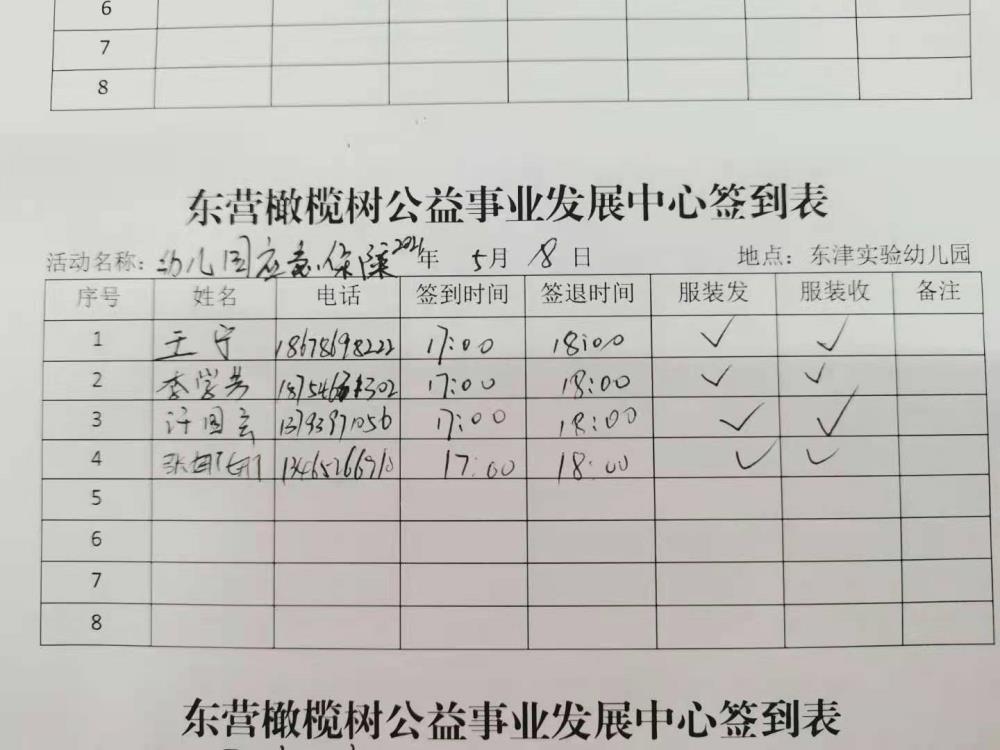 6
7
8
东营橄榄树公益事业发展中心签到表
活动名称: 幼儿园应急保障 2021年 5月 18日 地点: 东津实验幼儿园
序号 姓名 电话 签到时间 签退时间 服装发 服装收 备注
1 王宁 18678698222 17:00 18:00 ✓ ✓
2 李学芳 17:00 18:00 ✓ ✓
3 许国玄 13793971056 17:00 18:00 ✓ ✓
4 张 13465266710 17:00 18:00 ✓ ✓
5
6
7
8
东营橄榄树公益事业发展中心签到表